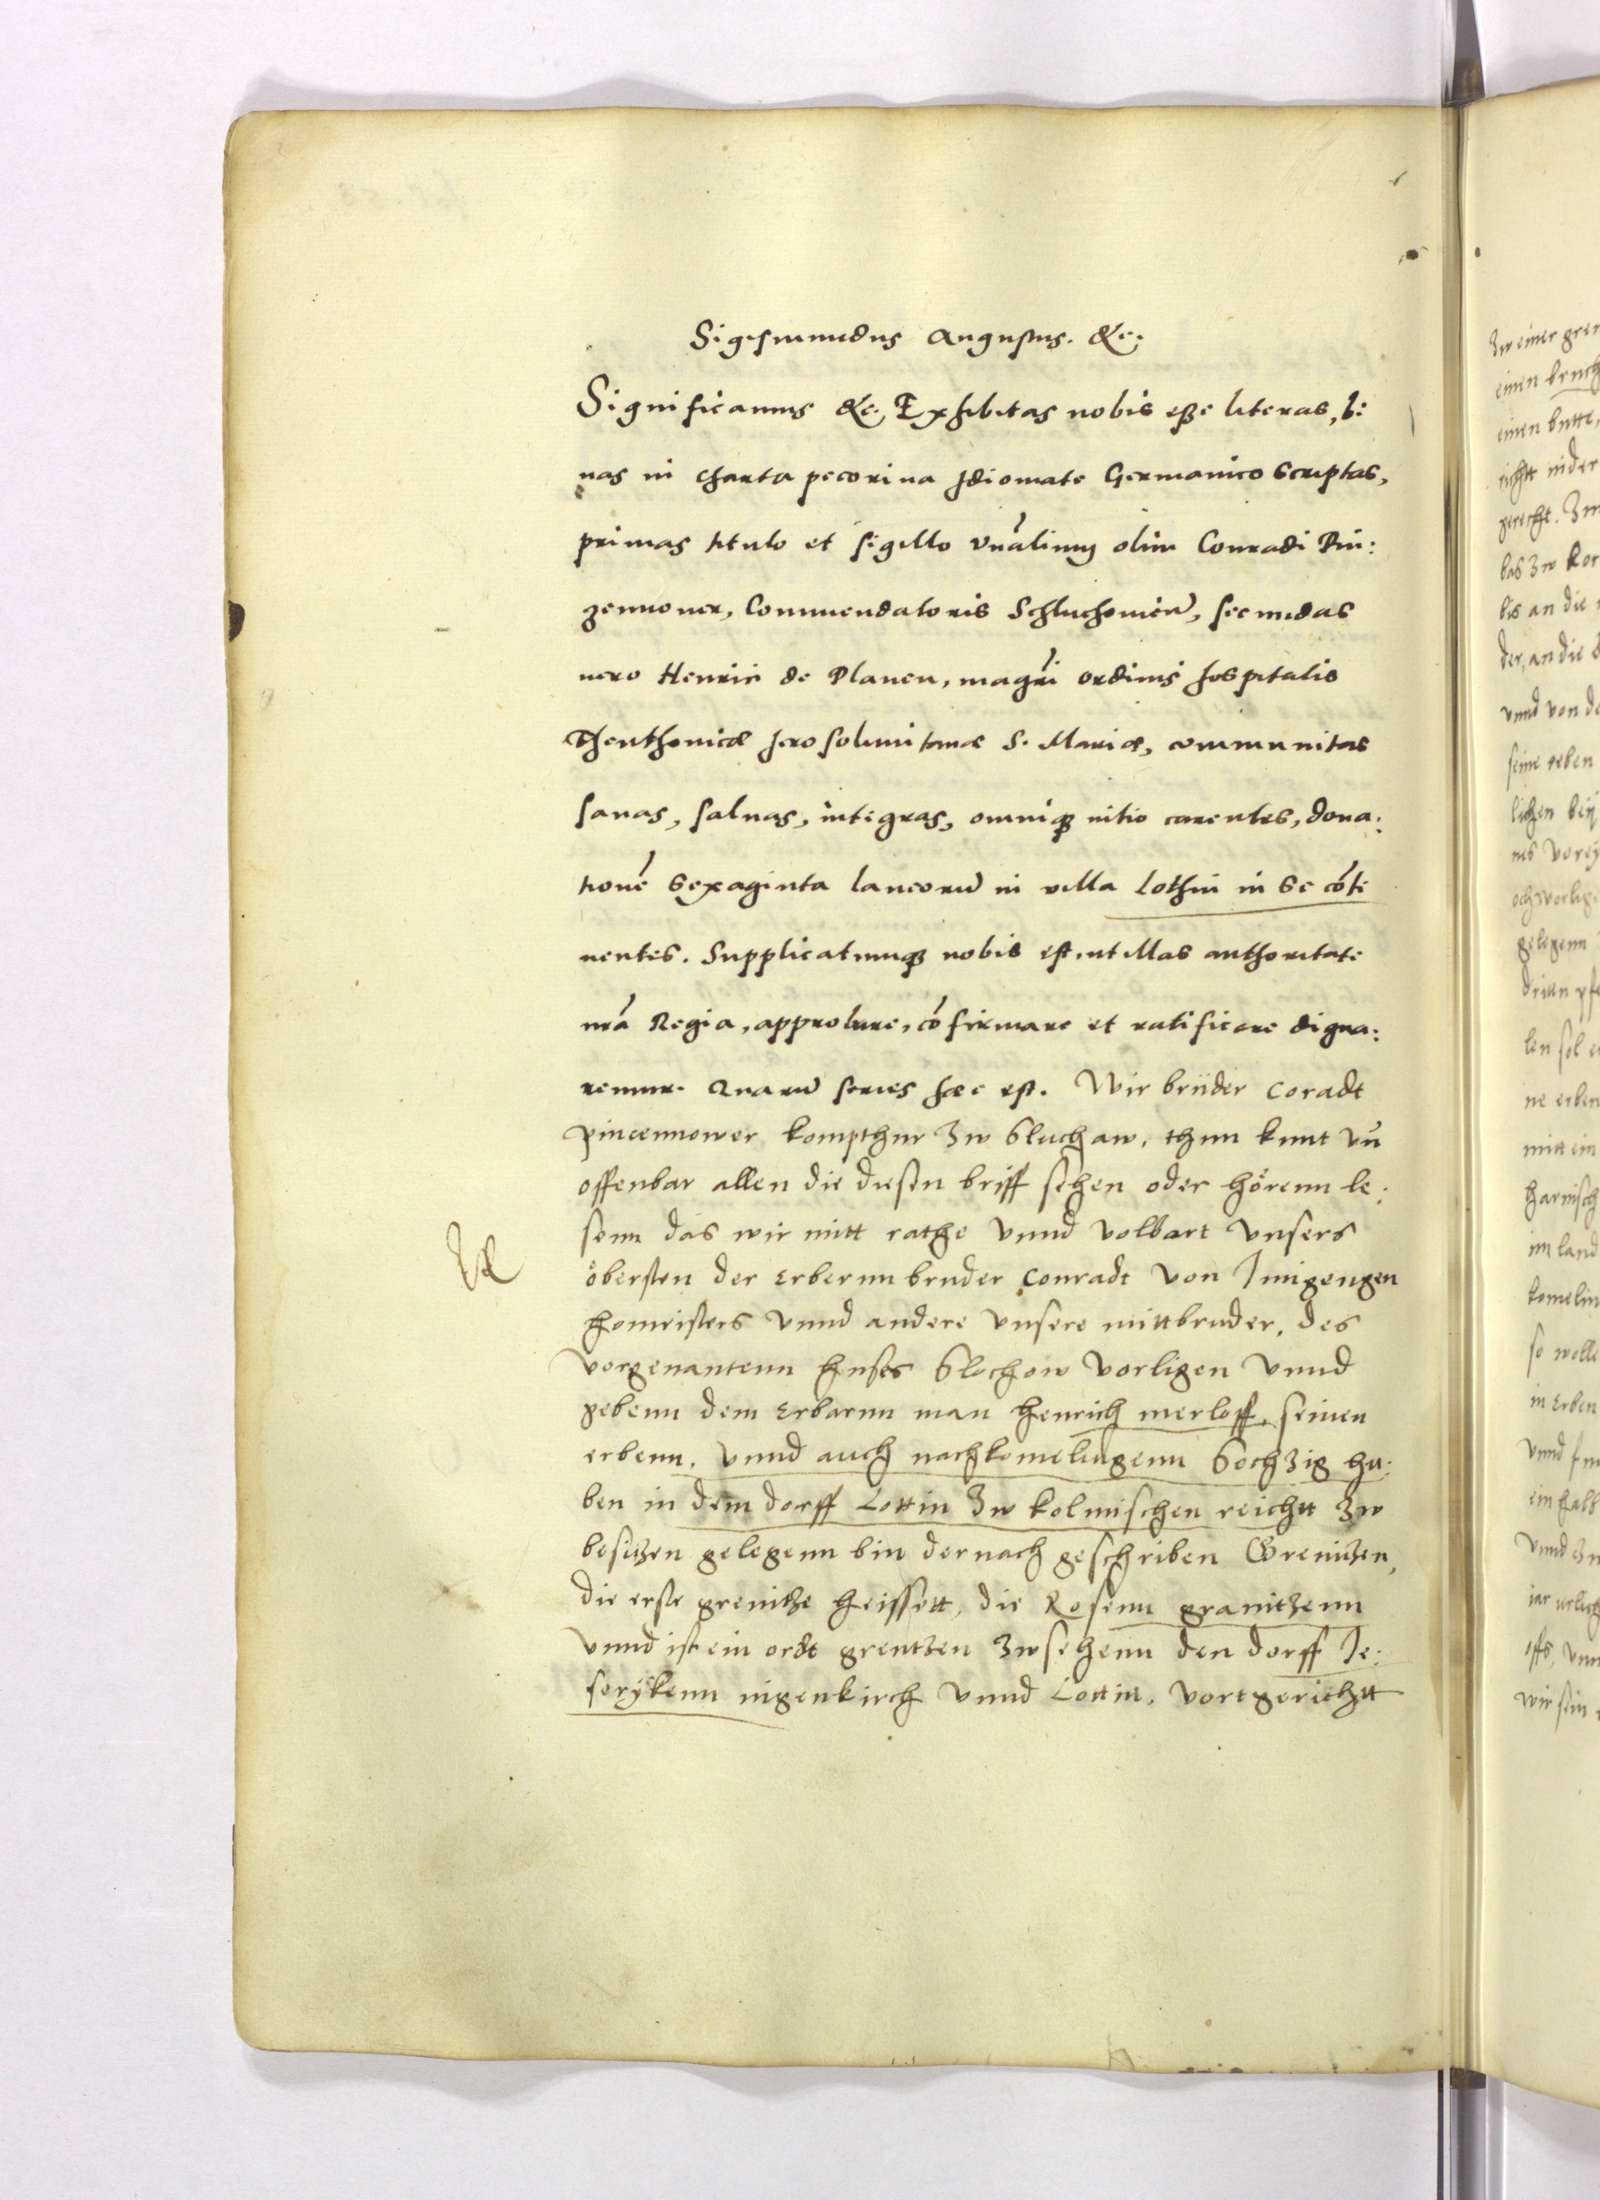 Sigismundus Augustus. &c.
Significamus &c. Exhibitas nobis eße literas, bi:
nas in charta pecorina Idiomate Germanico scriptas,
primas titulo et sigillo vnálium olim Conradi Pin:
zennoner, Commendatoris Schluchouien̄, secundas
uero Henrici de Plauen, magrí ordinis hospitalis
Theuthonicæ Jerosolimitanæ S. Mariæ, communitas
sanas, saluas, integras, omniq3 uitio carentes, dona:
tionē sexaginta laneorū in uilla Lothin in se cōti
nentes. Supplicatumq3 nobis est, ut illas authoritate
nrā Regia, approbare, cōfirmare et ratificare digna:
remur. Quarū series hæc est. Wir brüder Coradt
pincennower kompthur zw Sluchaw, thun kunt vn̄
offenbar allen die diesen briff sehen oder hörenn le:
senn das wir mitt rathe vnnd volbart vnsers
öbersten der erbernn bruder Conradt von Jnnigengen
homeisters vnnd andere vnsere mittbruder, des
vorgenantenn huses Slochow vorligen vnnd
gebenn dem erbarnn man henrich merloff, seinen
erbenn, vnnd auch nachkomelingenn Sechzig hu:
ben in dem dorff Lottin zw kolmischen reichtt zw
besitzen gelegenn bin dernach geschriben Grenitzen,
die erste grenitze heissett, die Rosenn granitzenn
vnnd ist ein ordt grentzen zwsehenn den dorff Je:
serÿkenn nigenkirch vnnd Lottin, vortgerichtt